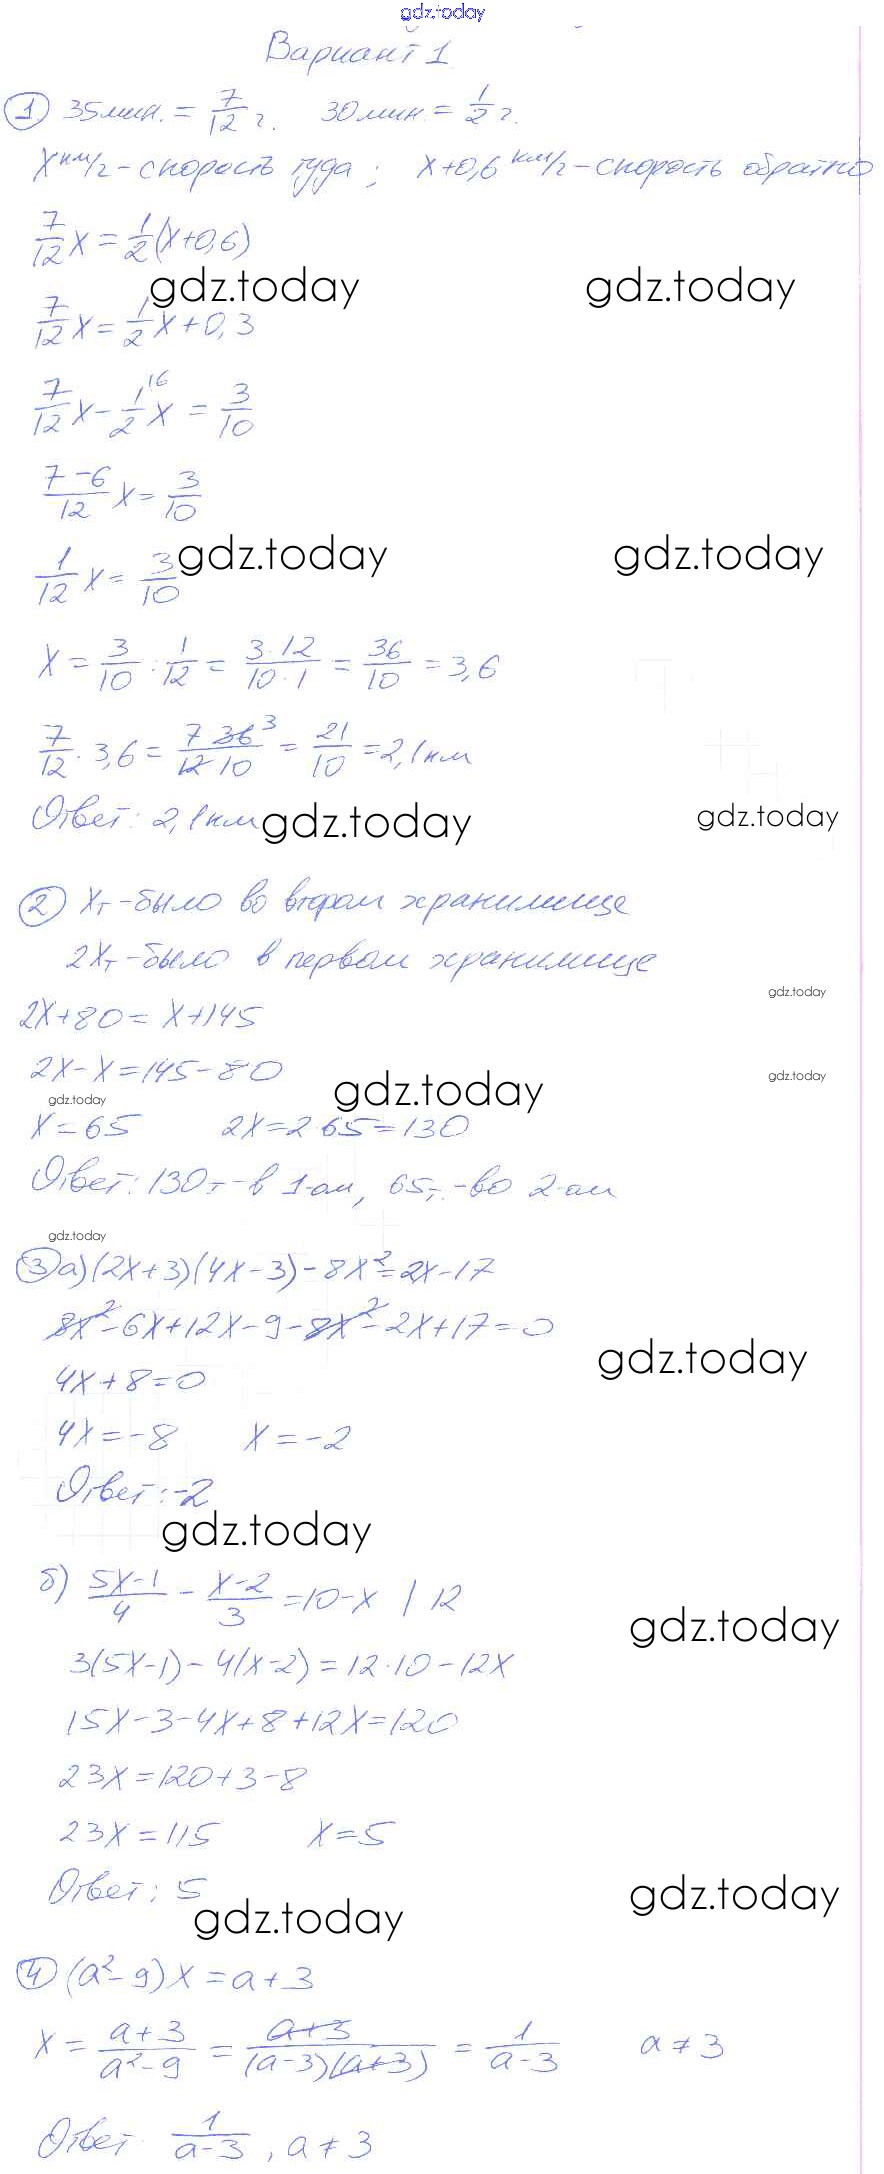 gdz.today
Вариант 1
① 35мин. = 7/12 г. 30мин. = 1/2 г.
X км/г - скорость туда; X+0,6 км/г - скорость обратно
7/12 X = 1/2 (X+0,6)
gdz.today gdz.today
7/12 X = 1/2 X + 0,3
7/12 X - 1/2 \6 X = 3/10
(7-6)/12 X = 3/10
gdz.today gdz.today
1/12 X = 3/10
X = 3/10 : 1/12 = (3·12)/(10·1) = 36/10 = 3,6
7/12 · 3,6 = (7 36 3)/(12 10) = 21/10 = 2,1км
Ответ: 2,1км
gdz.today gdz.today
② Xт - было во втором хранилище
2Xт - было в первом хранилище
gdz.today
2X+80 = X+145
2X-X = 145-80
gdz.today gdz.today gdz.today
X = 65 2X = 2·65 = 130
Ответ: 130т - в 1-ом, 65т. - во 2-ом
gdz.today
③ а) (2X+3)(4X-3) - 8X² = 2X-17
8X² - 6X + 12X - 9 - 8X² - 2X + 17 = 0
gdz.today
4X+8 = 0
4X = -8 X = -2
Ответ: -2
gdz.today
б) (5X-1)/4 - (X-2)/3 = 10-X | 12
gdz.today
3(5X-1) - 4(X-2) = 12·10 - 12X
15X-3-4X+8+12X = 120
23X = 120+3-8
23X = 115 X = 5
Ответ: 5
gdz.today gdz.today
④ (a²-9)X = a+3
X = (a+3)/(a²-9) = (a+3)/((a-3)(a+3)) = 1/(a-3) a ≠ 3
Ответ 1/(a-3), a ≠ 3